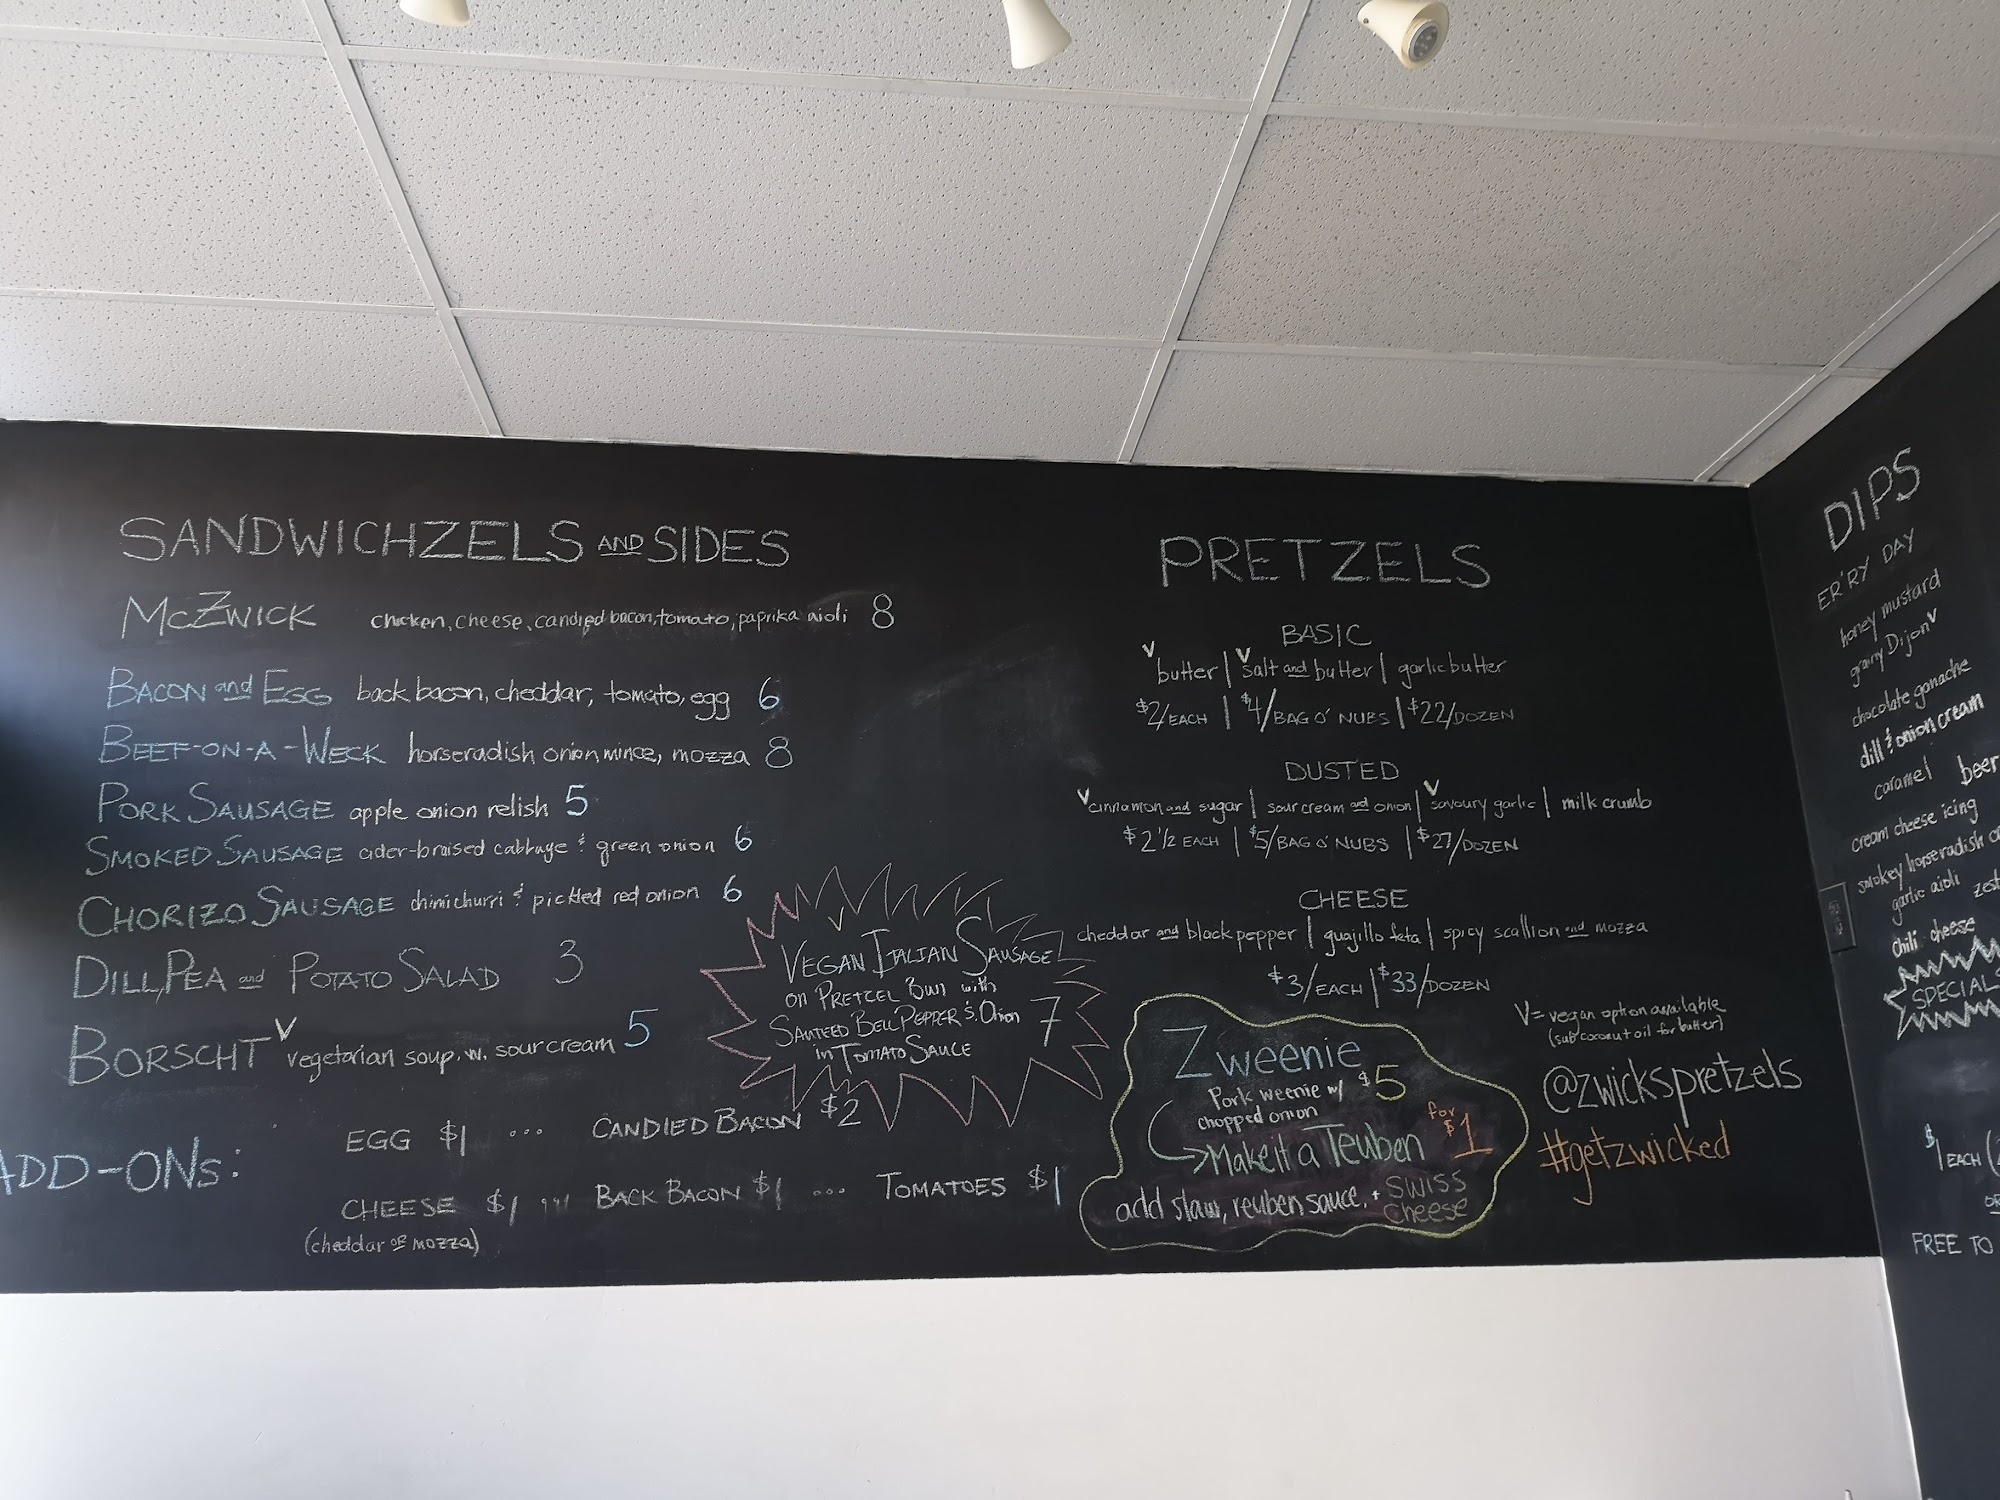 SANDWICHZELS AND SIDES
McZWICK chicken, cheese, candied bacon, tomato, paprika aioli 8
BACON and EGG back bacon, cheddar, tomato, egg 6
BEEF-ON-A-WECK horseradish onion mince, mozza 8
PORK SAUSAGE apple onion relish 5
SMOKED SAUSAGE cider-braised cabbage & green onion 6
CHORIZO SAUSAGE chimichurri & pickled red onion 6
DILL, PEA and POTATO SALAD 3
BORSCHT V vegetarian soup w. sour cream 5
V
VEGAN ITALIAN SAUSAGE
on PRETZEL BUN with
SAUTEED BELL PEPPER & Onion 7
in TOMATO SAUCE
ADD-ONs:
EGG $1 ... CANDIED BACON $2
CHEESE $1 ... BACK BACON $1 ... TOMATOES $1
(cheddar or mozza)
PRETZELS
BASIC
V butter | V salt and butter | garlic butter
$2/EACH | $4/BAG O' NUBS | $22/DOZEN
DUSTED
V cinnamon and sugar | sour cream and onion | V savoury garlic | milk crumb
$2 1/2 EACH | $5/BAG O' NUBS | $27/DOZEN
CHEESE
cheddar and black pepper | guajillo feta | spicy scallion and mozza
$3/EACH | $33/DOZEN
Zweenie
Pork weenie w/ $5
chopped onion
Make it a Teuben for $1
add slaw, reuben sauce, + SWISS
cheese
V = vegan option available
(sub coconut oil for butter)
@zwickspretzels
#getzwicked
DIPS
ER'RY DAY
honey mustard
grainy Dijon V
chocolate ganache
dill & onion cream
caramel beer
cream cheese icing
smokey horseradish
garlic aioli
chili cheese
SPECIALS
$1 EACH
FREE TO